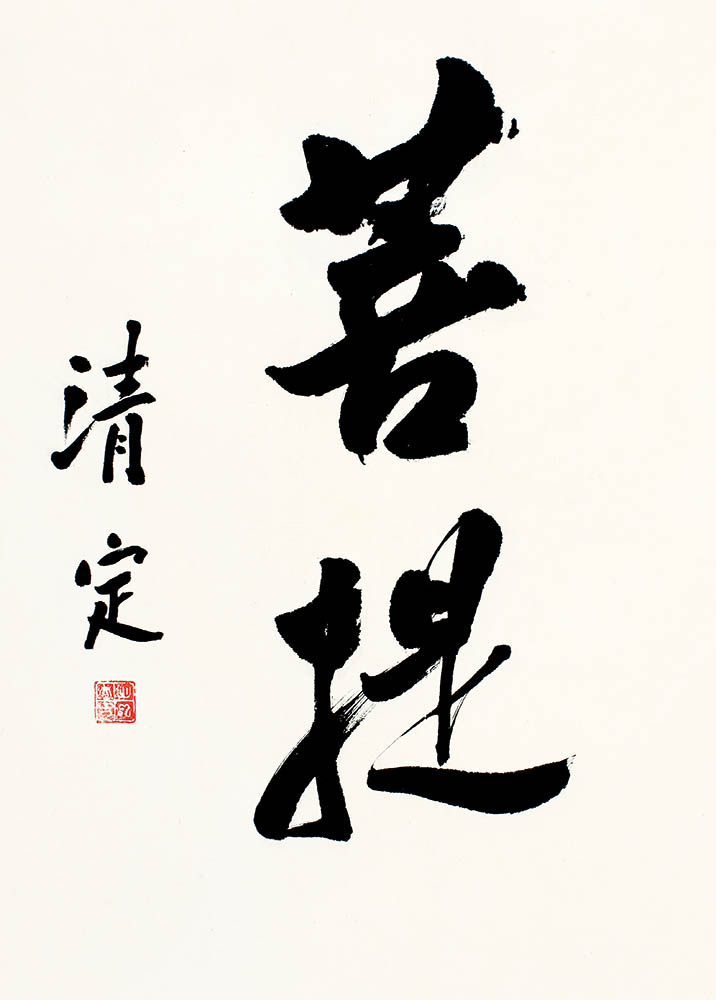 菩提
清定